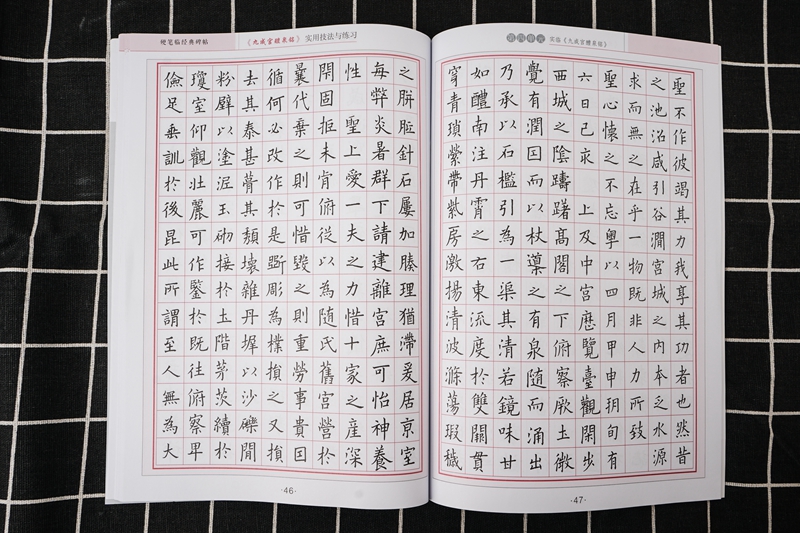 硬笔临经典碑帖
《九成宫醴泉铭》实用技法与练习
之胼胝針石屢加腠理猶滯爰居京室
每弊炎暑群下請建離宮庶可怡神養
性 聖上愛一夫之力惜十家之產深
閇固拒未肯俯從以為隨氏舊宮營於
曩代棄之則可惜毀之則重勞事貴因
循何必改作於是斲彫為樸損之又損
去其泰甚葺其頹壞雜丹墀以沙礫間
粉壁以塗泥玉砌接於土階茅茨續於
瓊室仰觀壯麗可作鑒於既往俯察卑
儉足垂訓於後昆此所謂至人無為大
·46·
第四单元 实临《九成宫醴泉铭》
聖不作彼竭其力我享其功者也然昔
之池沼咸引谷澗宮城之內本乏水源
求而無之在乎一物既非人力所致
聖心懷之不忘粵以四月甲申朔旬有
六日己亥 上及中宮歷覽臺觀閑步
西城之陰躊躇高閣之下俯察厥土微
覺有潤因而以杖導之有泉隨而涌出
乃承以石檻引為一渠其清若鏡味甘
如醴南注丹霄之右東流度於雙闕貫
穿青瑣縈帶紫房激揚清波滌蕩瑕穢
·47·